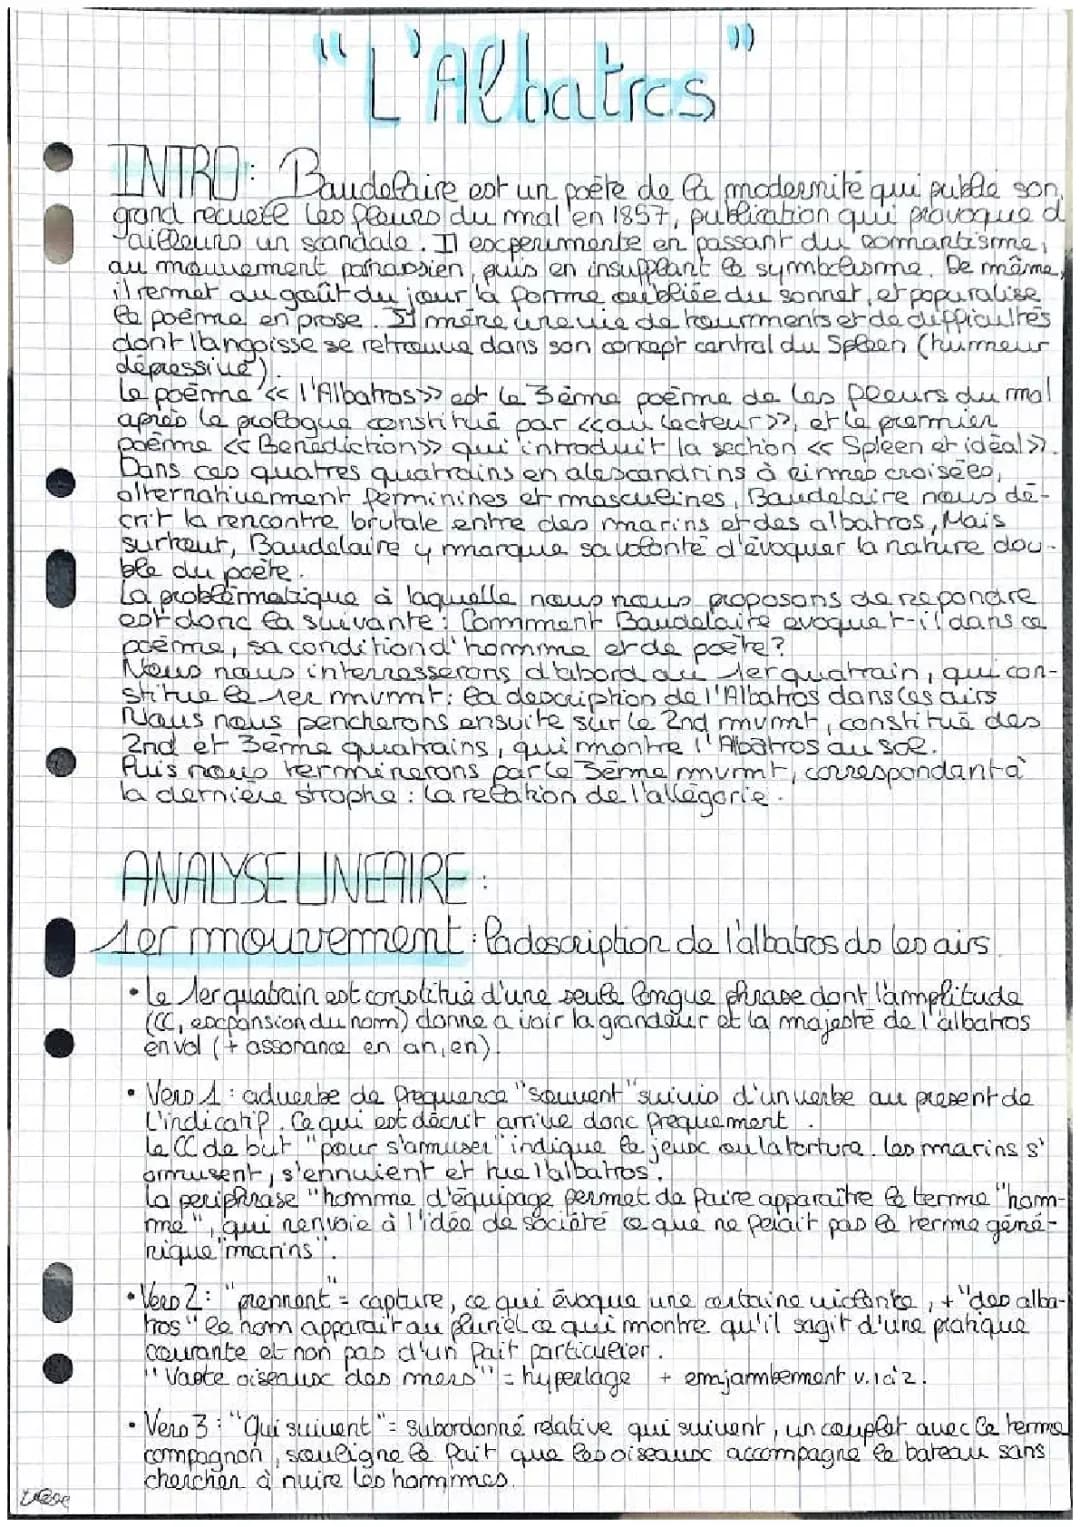 "L'Albatros"
INTRO: Baudelaire est un poète de la modernité qui publie son
grand recueil les fleurs du mal en 1857, publication qui provoque d
'ailleurs un scandale. Il expérimente en passant du romantisme,
au mouvement parnassien, puis en insufflant le symbolisme. De même,
il remet au goût du jour la forme oubliée du sonnet, et popuralise
le poème en prose. Il mène une vie de tourments et de difficultés
dont l'angoisse se retrouve dans son concept central du Spleen (humeur
dépressive).
Le poème <<l'Albatros>> est le 3ème poème de les fleurs du mal
après le prologue constitué par <<au lecteur>>, et le premier
poème <<Bénédiction>> qui introduit la section <<Spleen et idéal>>.
Dans ces quatres quatrains en alexandrins à rimes croisées,
alternativement femminines et masculines, Baudelaire nous dé-
crit la rencontre brutale entre des marins et des albatros, Mais
surtout, Baudelaire y marque sa volonté d'évoquer la nature dou-
ble du poète.
La problématique à laquelle nous nous proposons de répondre
est donc la suivante: Comment Baudelaire évoque t-il dans ce
poème, sa condition d'homme et de poète?
Nous nous interresserons d'abord au 1er quatrain, qui con-
stitue le 1er mvmt: la description de l'Albatros dans les airs
Nous nous pencherons ensuite sur le 2nd mvmt, constitué des
2nd et 3ème quatrains, qui montre l'Albatros au sol.
Puis nous terminerons par le 3ème mvmt, correspondant à
la dernière strophe: la relation de l'allégorie.
ANALYSE LINEAIRE:
1er mouvement: la description de l'albatros ds les airs
• Le 1er quatrain est constitué d'une seule longue phrase dont l'amplitude
(CC, expansion du nom) donne à voir la grandeur et la majesté de l'albatros
en vol (+ assonance en an, en).
• Vers 1: adverbe de fréquence "souvent" suivis d'un verbe au présent de
l'indicatif. Ce qui est décrit arrive donc fréquemment.
Le CC de but "pour s'amuser" indique le jeux ou la torture. Les marins s'
amusent, s'ennuient et tue l'albatros.
La periphrase "homme d'équipage permet de faire apparaître le terme "hom-
me", qui renvoie à l'idée de société ce que ne ferait pas le terme géné-
rique "marins".
• Vers 2: "prennent" = capture, ce qui évoque une certaine violente, + "des alba-
tros" le nom apparait au pluriel ce qui montre qu'il sagit d'une pratique
courante et non pas d'un fait particulier.
"Vaste oiseaux des mers" = hyperlage + emjambement v.1 à 2.
• Vers 3: "Qui suivent" = subordonné relative qui suivent, un couplet avec le terme
compagnon, souligne le fait que les oiseaux accompagne le bateau sans
chercher à nuire les hommes.